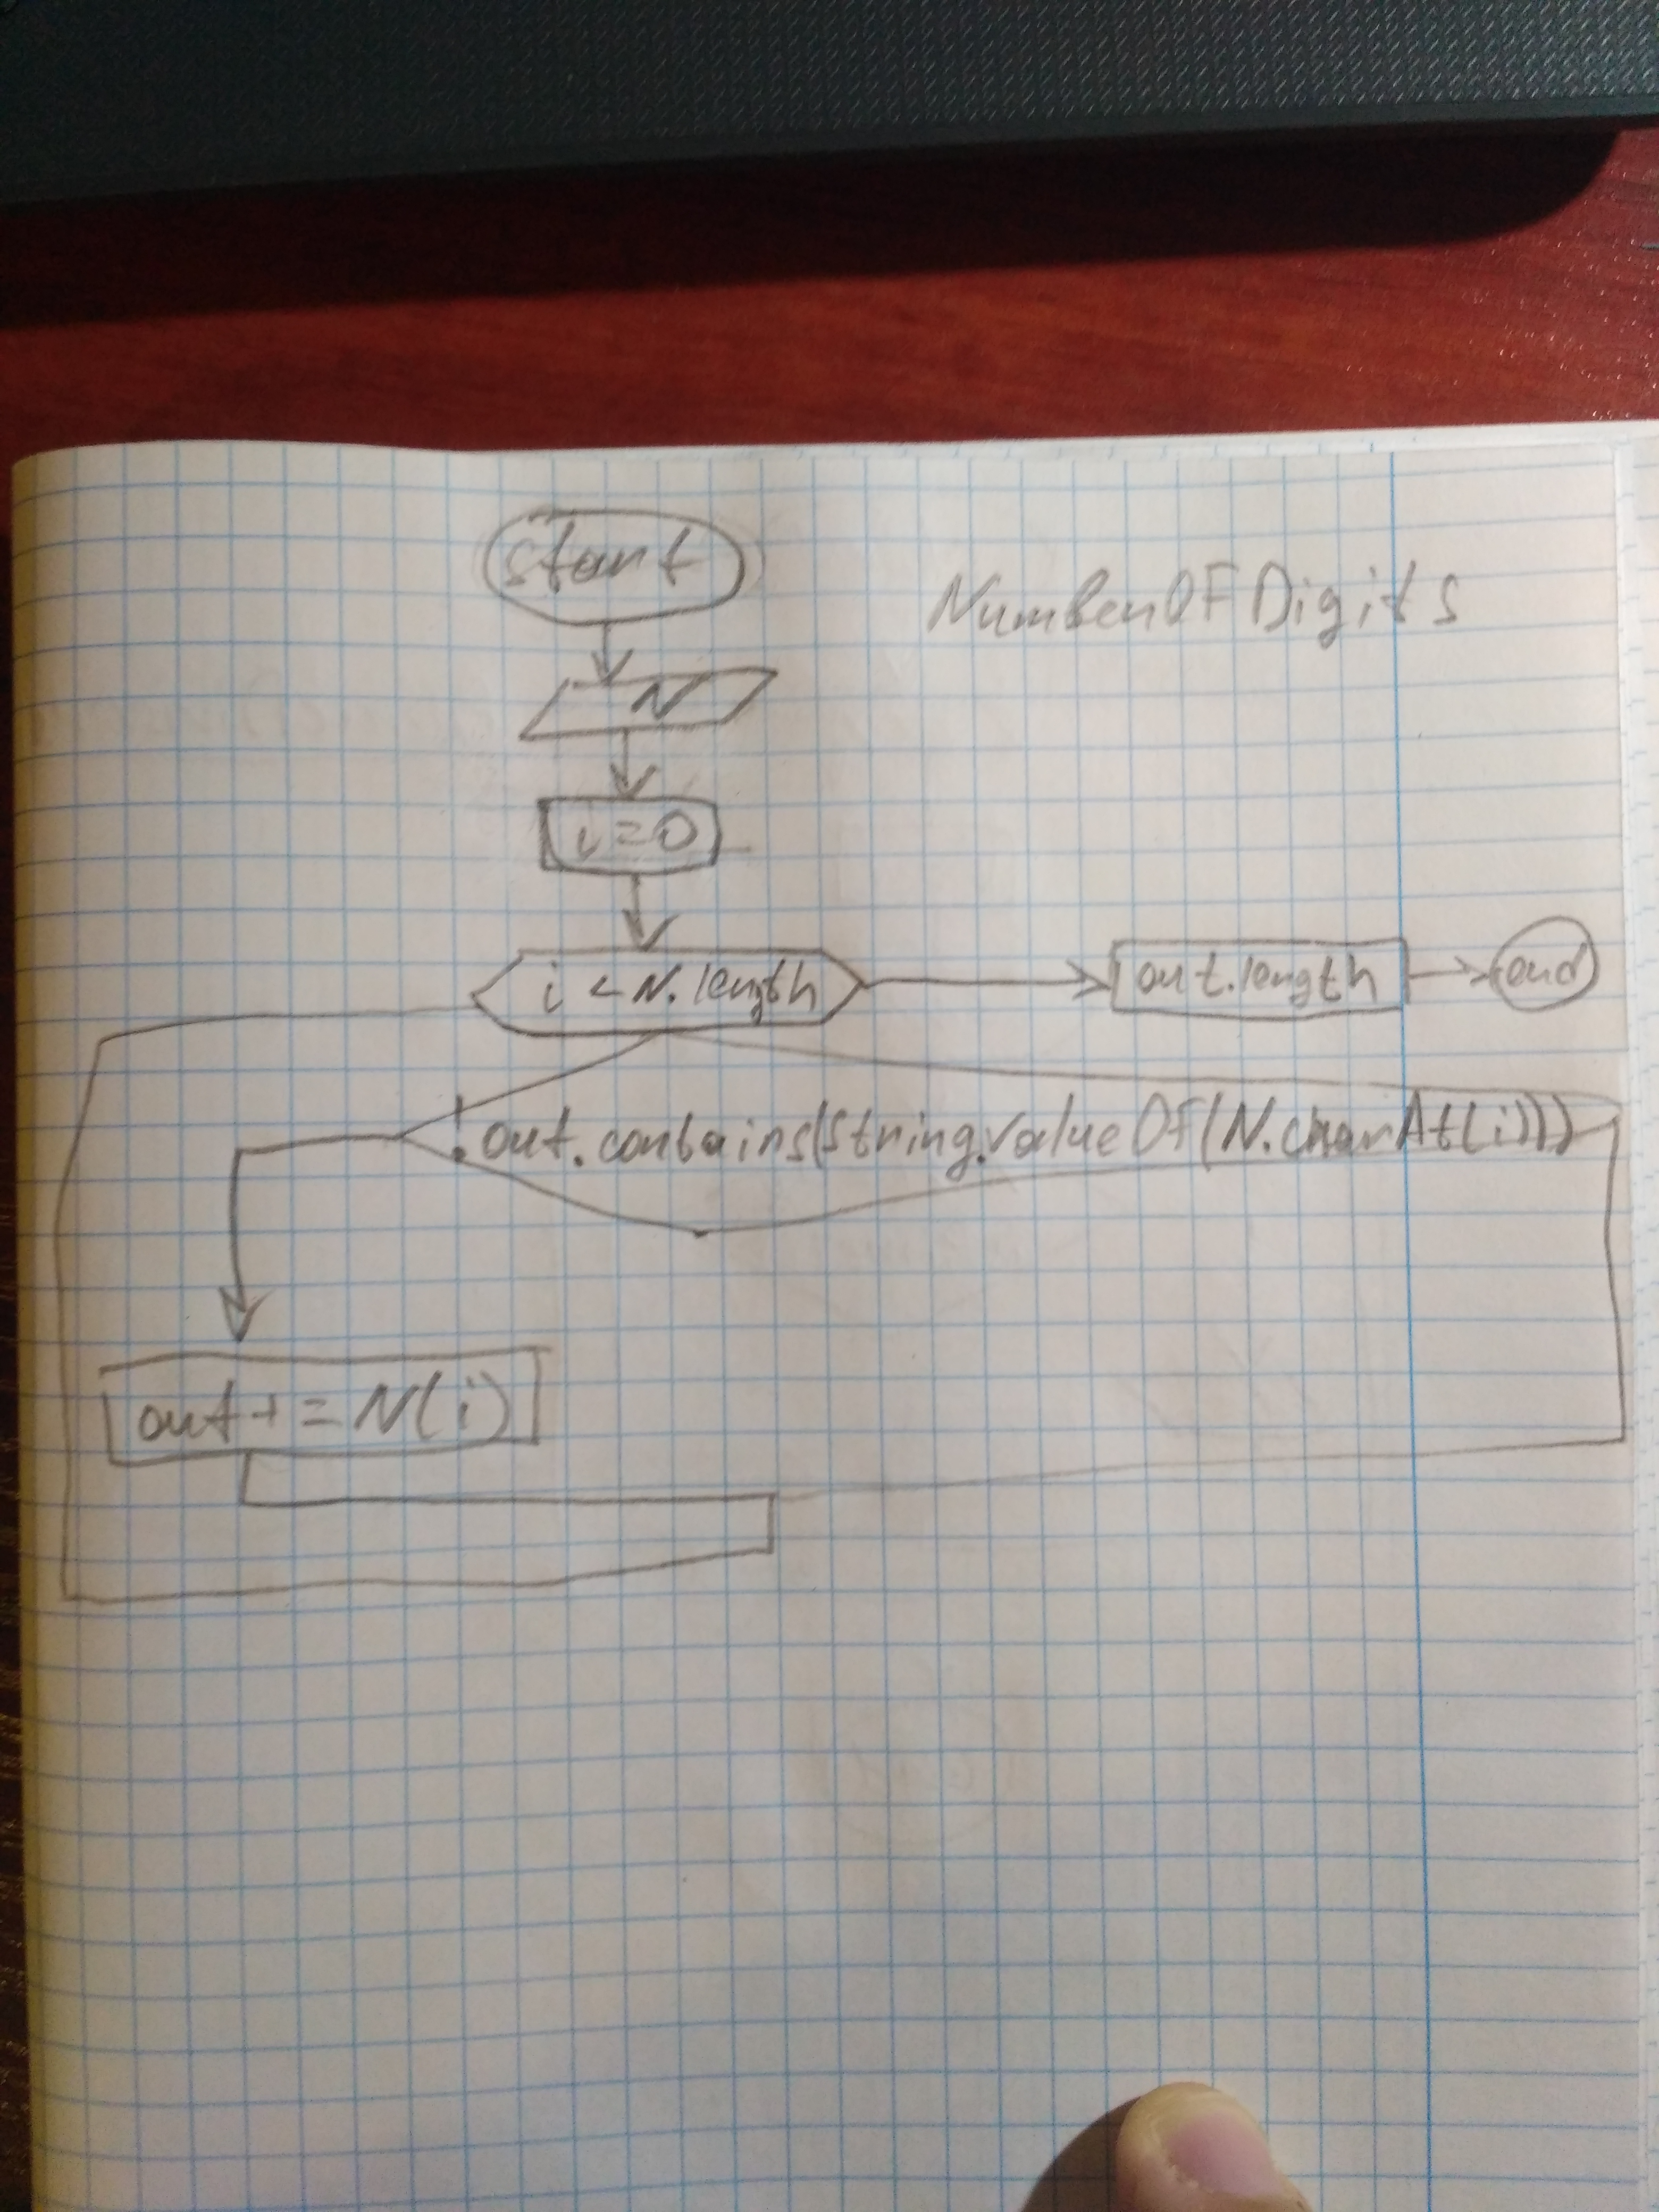 start
NumberOFDigits
N
i=0
i < N.length
out.length
end
!out.contains(String.valueOf(N.charAt(i)))
out+=N(i)